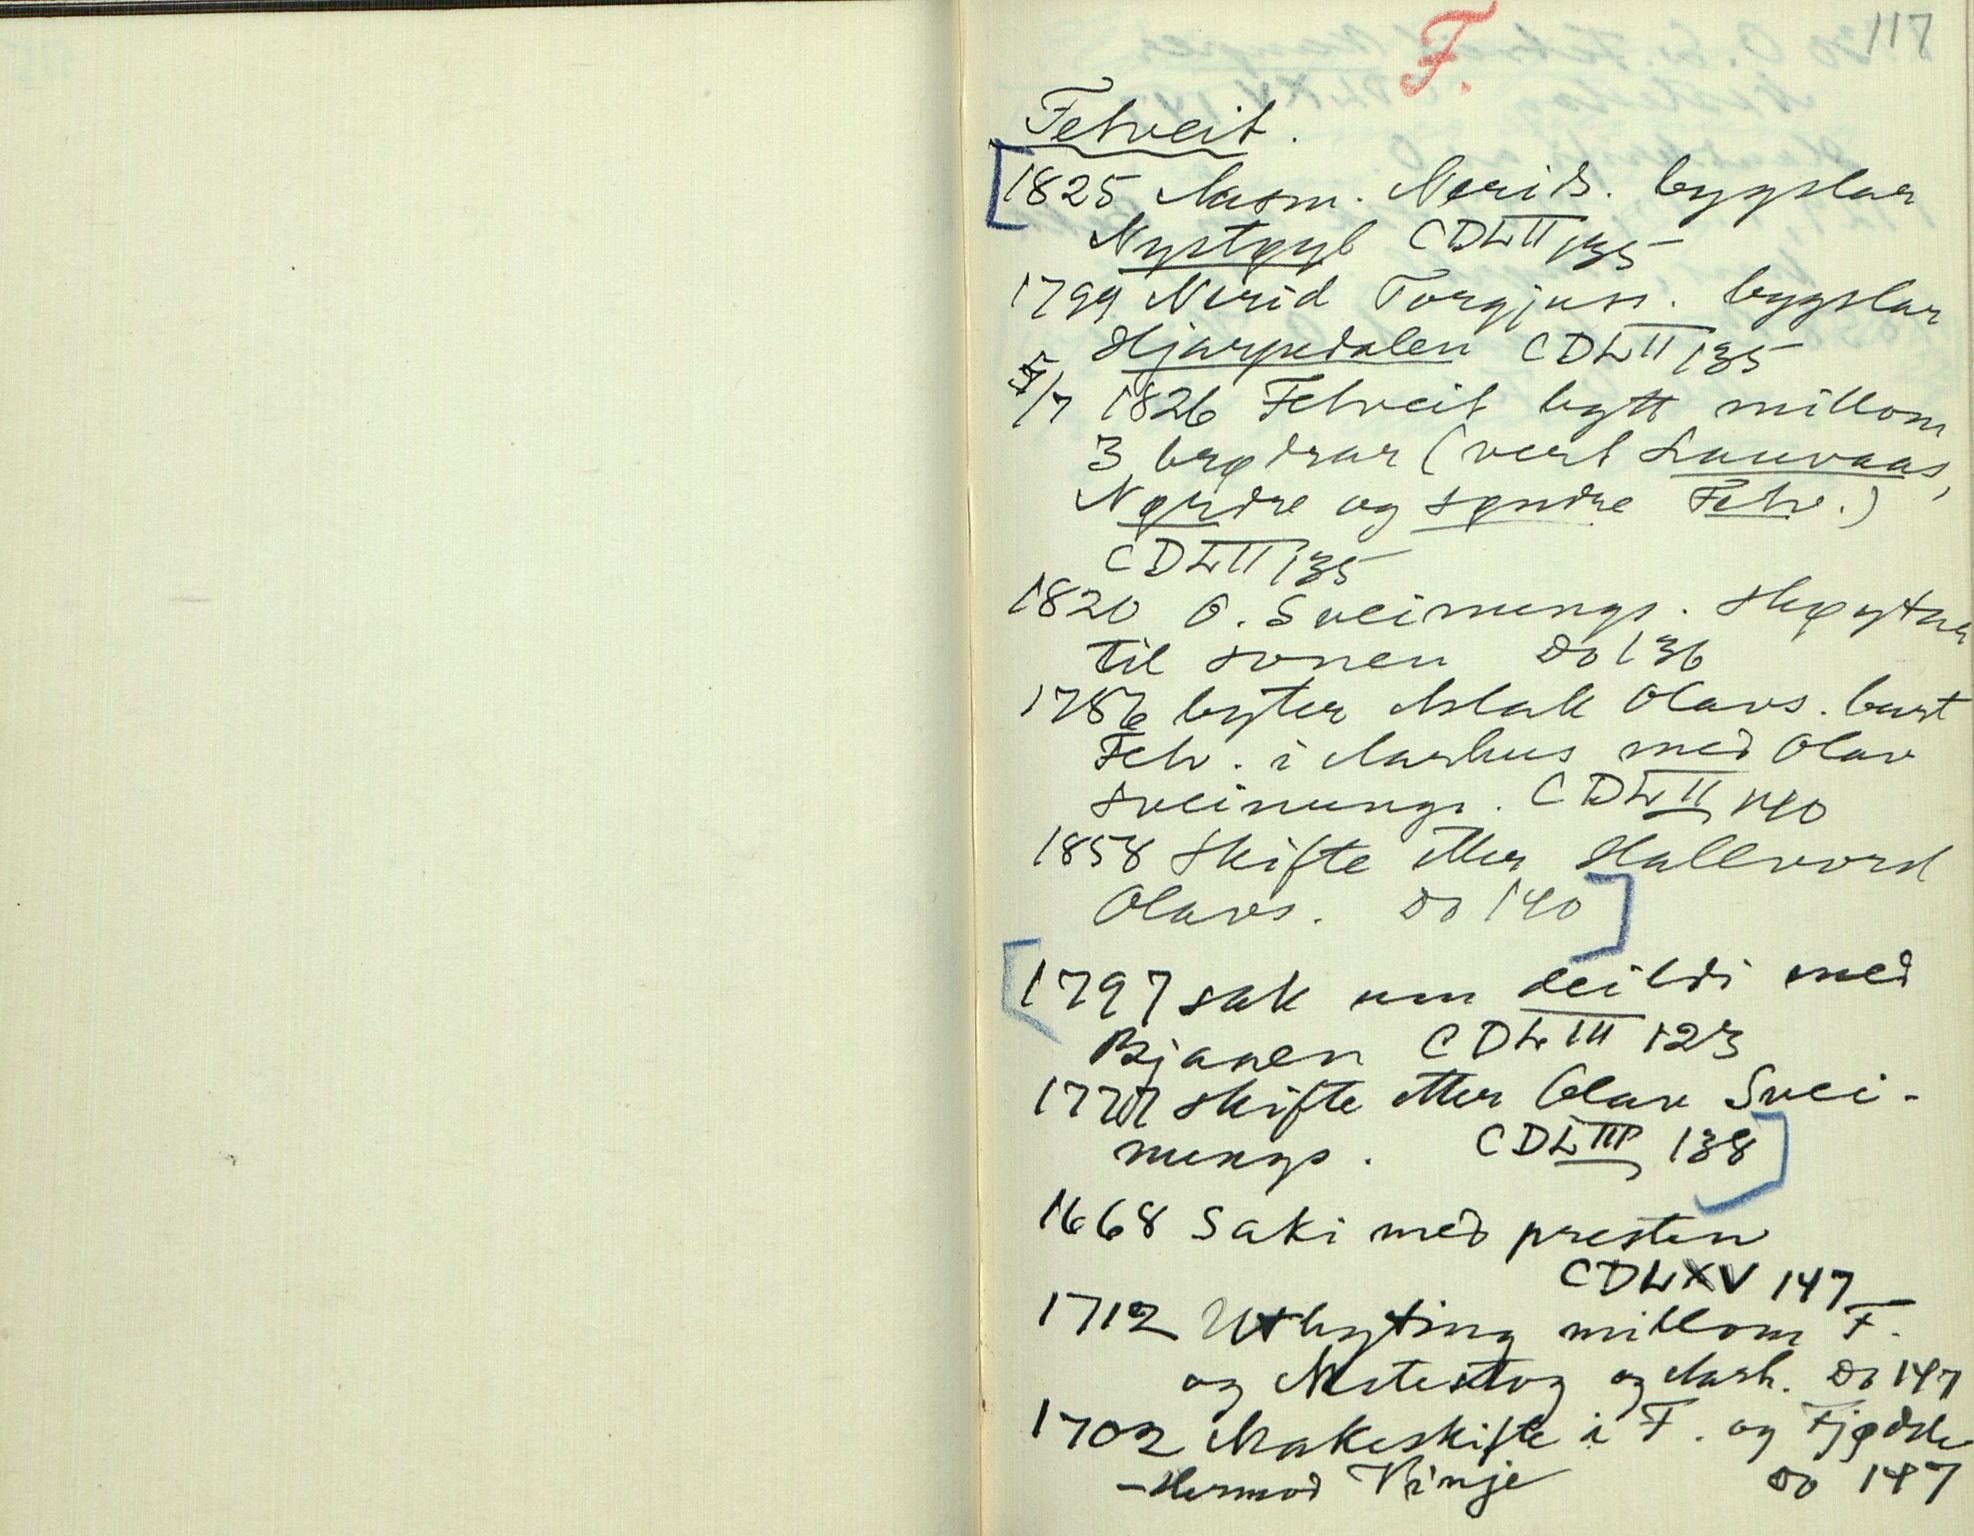 117
F.
Fetveit.
1825 Aasm. Nerids. bygslar
Nystøyl CDLII 135
1799 Nerid Torgjuss. bygslar
Hjarpedalen CDLII 135
5/7 1826 Fetveit bytt millom
3 brødrar (vert Lauvaas,
Nørdre og søndre Fetv.)
CDLII 135
1820 O. Sveinungs. skøyter
til sonen Do 136
1786 byter Aslak Olavs. burt
Fetv. i Aarhus med Olav
Sveinungs. CDLII 140
1858 Skifte etter Hallvord
Olavs. Do 140
1797 sak um deildi med
Bjaaen CDLIII 123
1777 skifte etter Olav Svei-
nungs. CDLIII 138
1668 Saki med presten
CDLXV 147
1712 Utbyting millom F.
og Nistestog og Aarh. Do 147
1702 Makeskifte i F. og
- Hermod Vinje Do 147